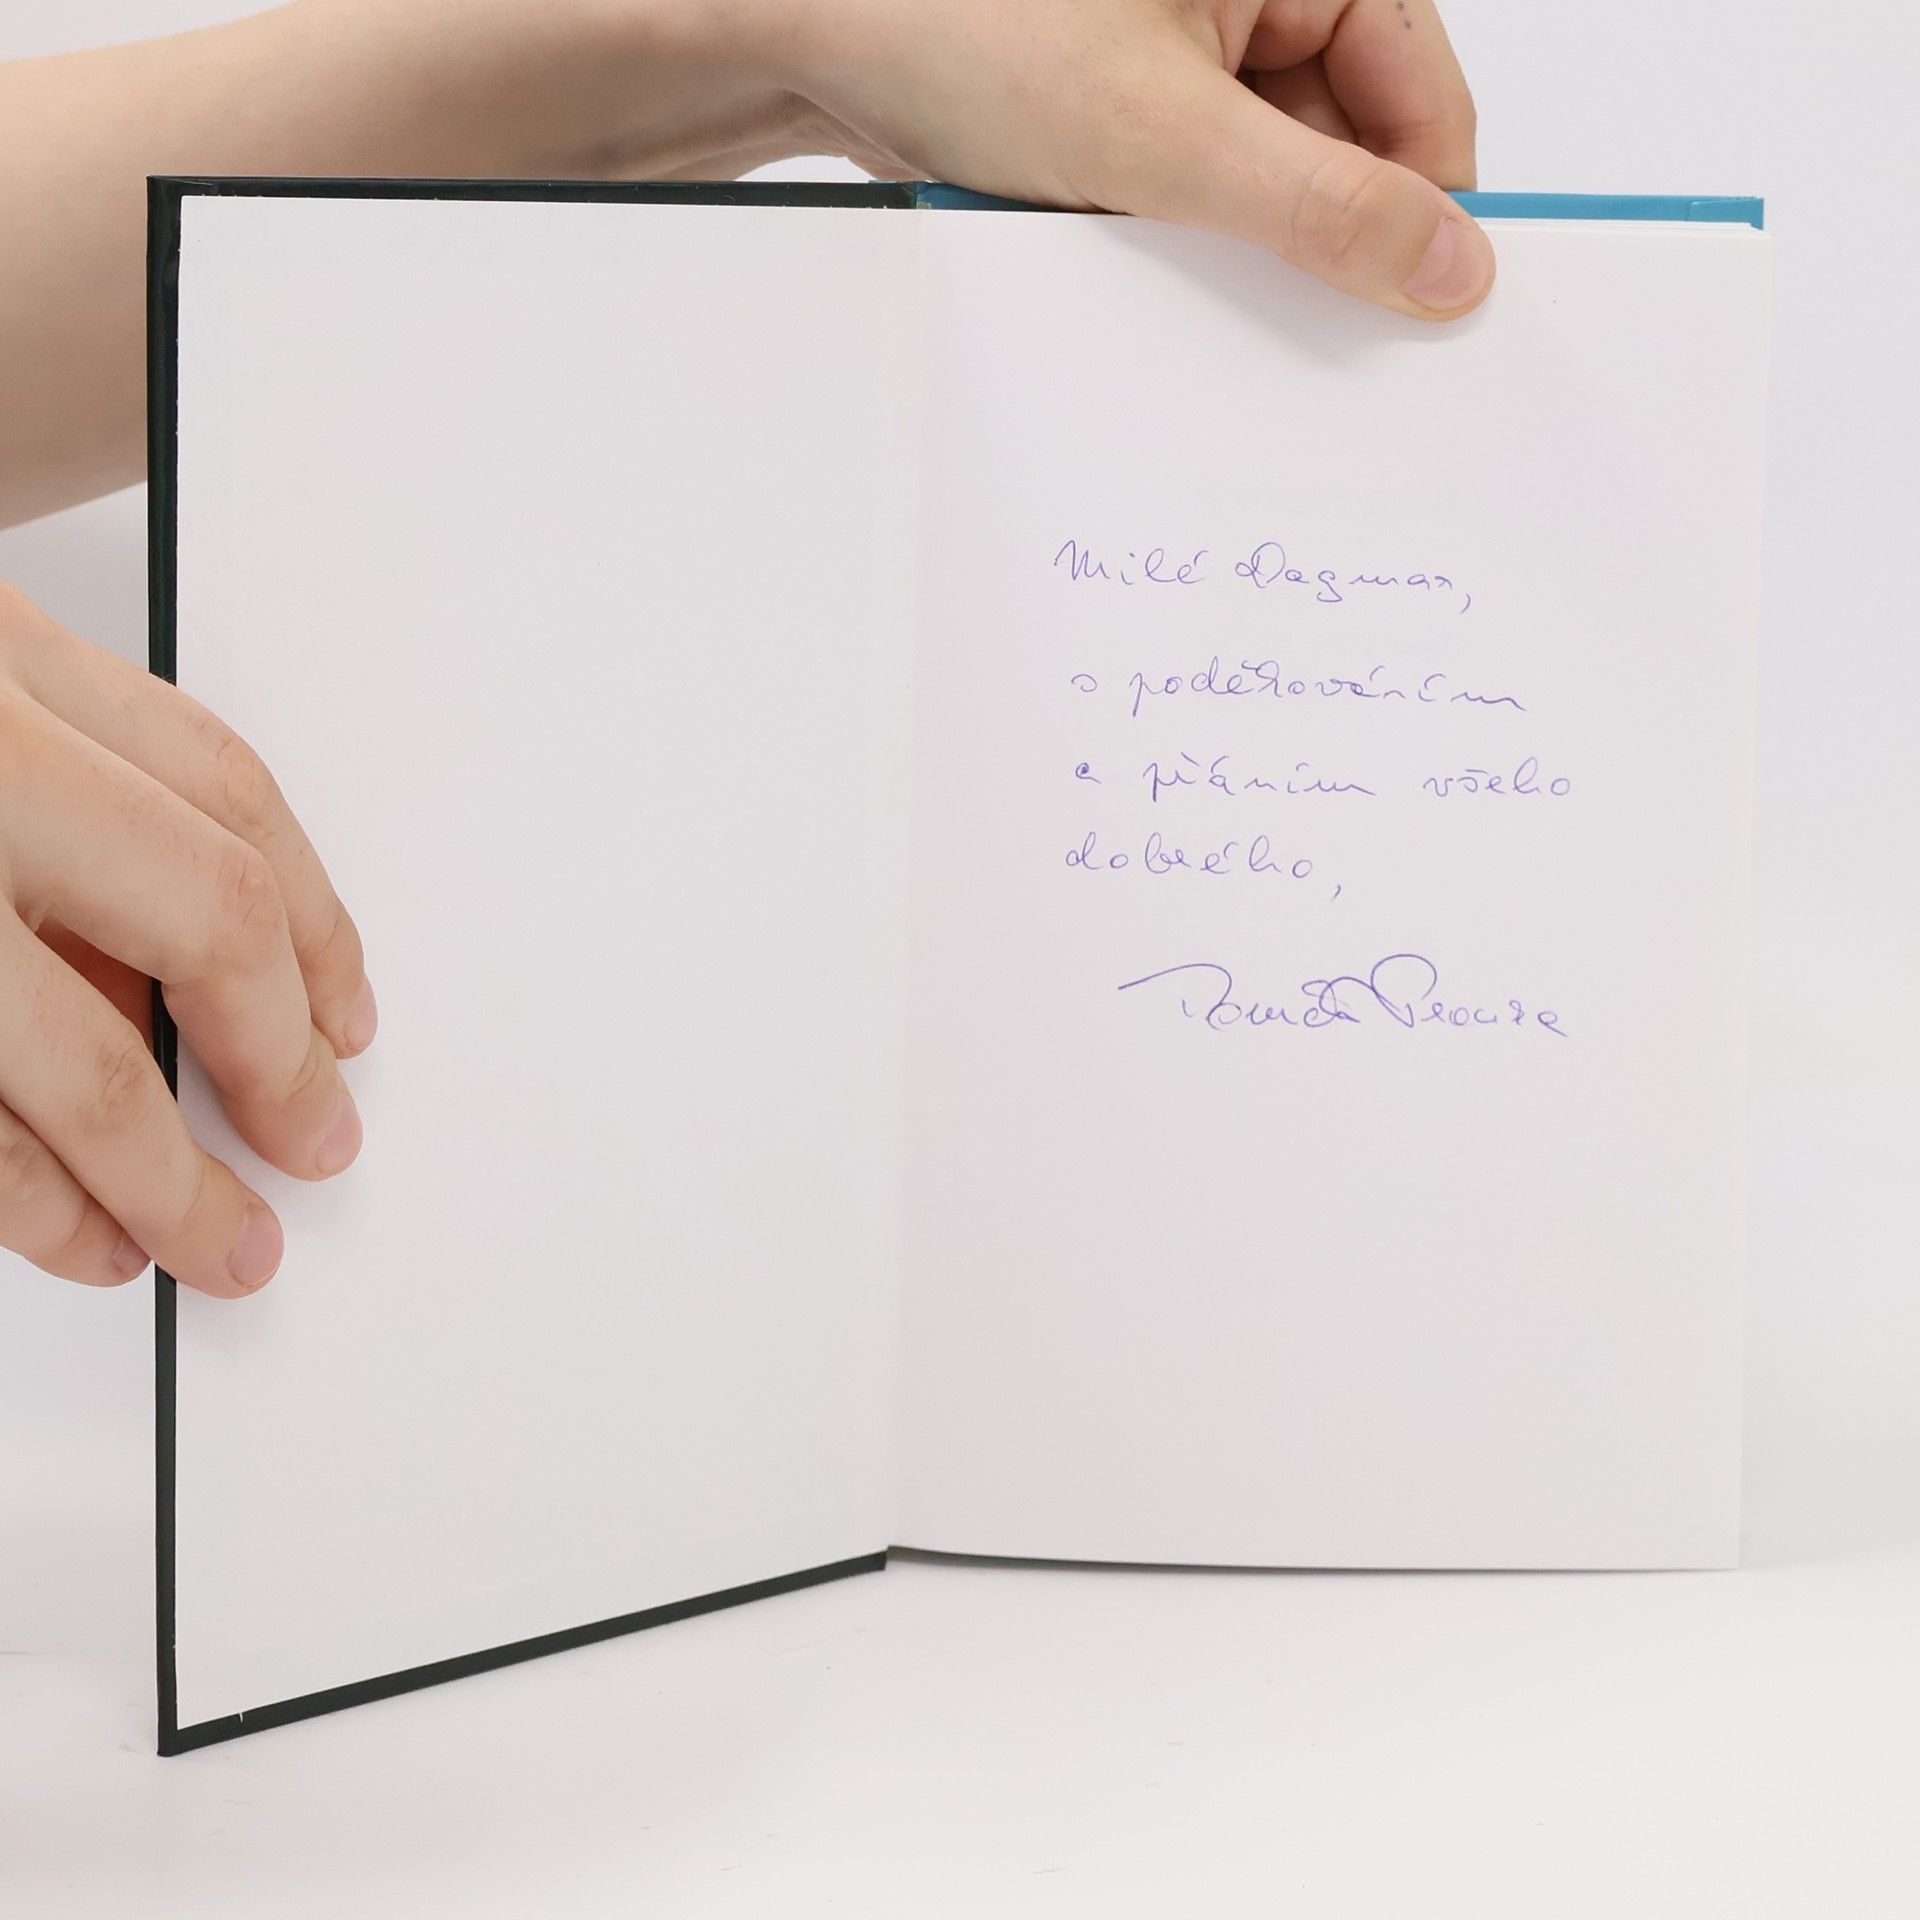 Milé Dagmar,
s poděkováním
a přáním všeho
dobrého,
Tomáš